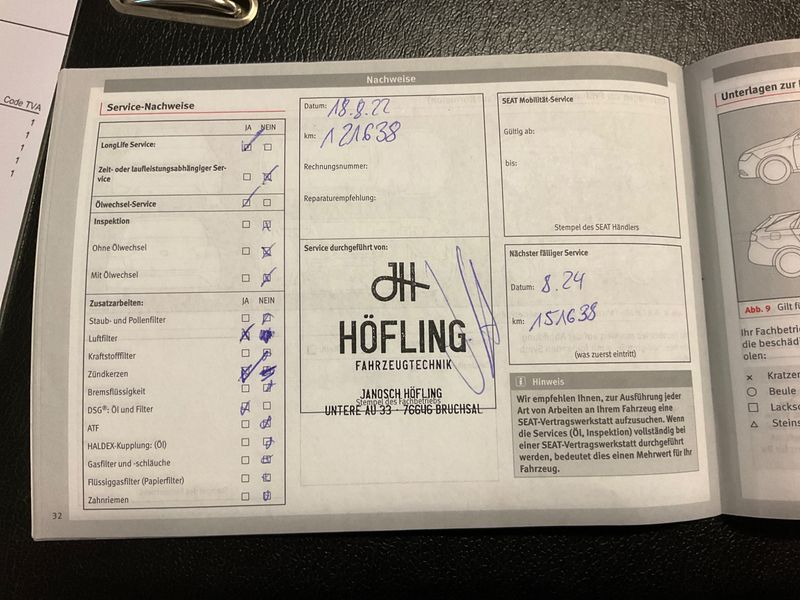 Code TVA
1
1
1
1
1
Nachweise
Service-Nachweise
JA NEIN
LongLife Service:
Zeit- oder laufleistungsabhängiger Ser-
vice
Ölwechsel-Service
Inspektion
Ohne Ölwechsel
Mit Ölwechsel
Zusatzarbeiten: JA NEIN
Staub- und Pollenfilter
Luftfilter
Kraftstofffilter
Zündkerzen
Bremsflüssigkeit
DSG®: Öl und Filter
ATF
HALDEX-Kupplung: (Öl)
Gasfilter und -schläuche
Flüssiggasfilter (Papierfilter)
Zahnriemen
32
Datum: 18.8.22
km: 121638
Rechnungsnummer:
Reparaturempfehlung:
Service durchgeführt von:
JH
HÖFLING
FAHRZEUGTECHNIK
JANOSCH HÖFLING
Stempel des Fachbetriebs
UNTERE AU 33 · 76646 BRUCHSAL
SEAT Mobilität-Service
Gültig ab:
bis:
Stempel des SEAT Händlers
Nächster fälliger Service
Datum: 8.24
km: 151638
(was zuerst eintritt)
Hinweis
Wir empfehlen Ihnen, zur Ausführung jeder
Art von Arbeiten an Ihrem Fahrzeug eine
SEAT-Vertragswerkstatt aufzusuchen. Wenn
die Services (Öl, Inspektion) vollständig bei
einer SEAT-Vertragswerkstatt durchgeführt
werden, bedeutet dies einen Mehrwert für Ihr
Fahrzeug.
Unterlagen zur
Abb. 9 Gilt
Ihr Fachbetrie
die beschädi
olen:
Kratzer
Beule
Lacksc
Steins